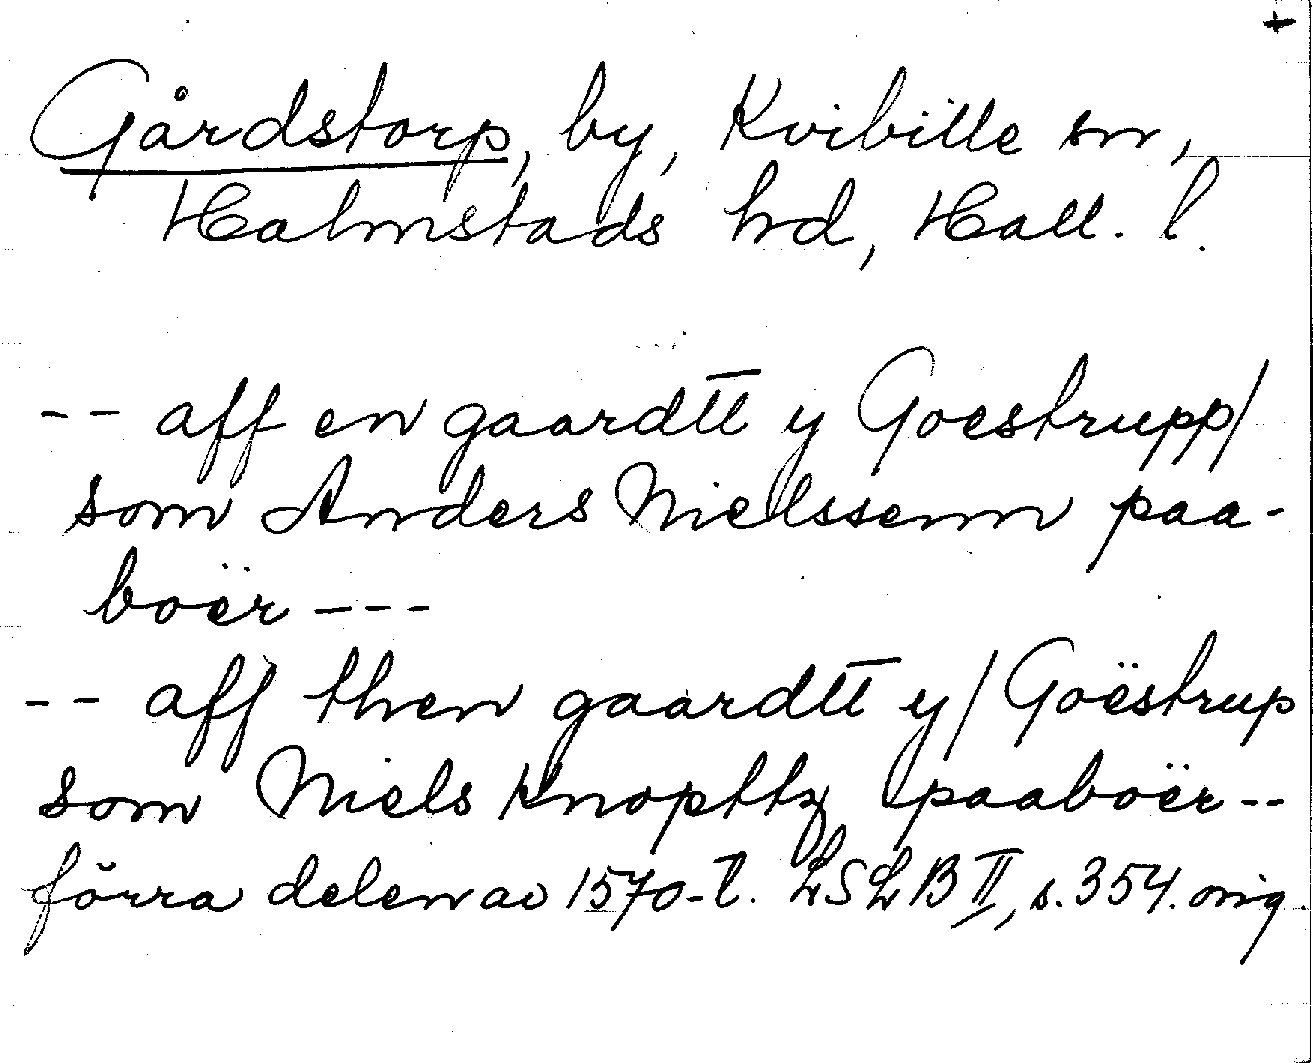 +
Gårdstorp, by, Kvibille sn,
Halmstads hd, Hall. l.
-- aff en gaardtt y Goestrupp/
som Anders Nielssenn paa-
boër ---
-- aff then gaardtt y/ Goëstrup
som Niels Knopttz paaboër --
förra delen av 1570-t. LSLB II, s. 354. orig.